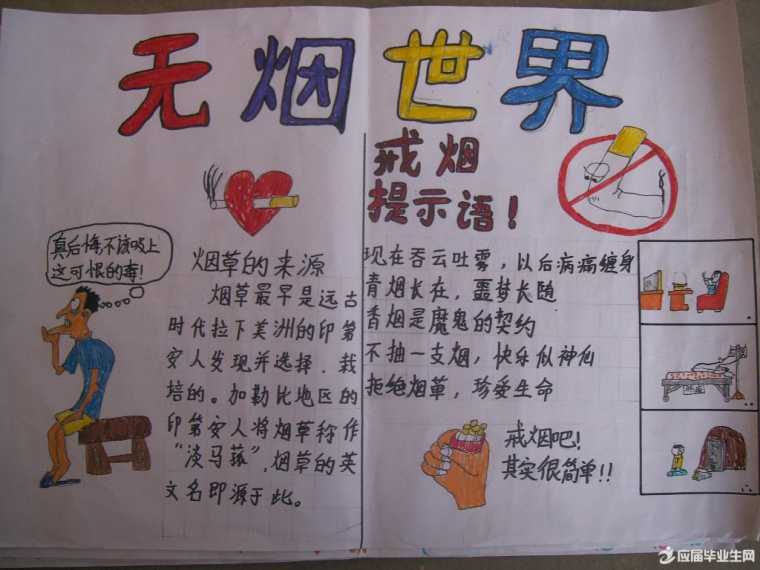 无烟世界
戒烟
提示语！
真后悔，不该吸上
这可恨的毒！
烟草的来源
烟草最早是远古
时代拉下美洲的印第
安人发现并选择．栽
培的。加勒比地区的
印第安人将烟草称作
“淡马菰”，烟草的英
文名即源于此。
现在吞云吐雾，以后病痛缠身
青烟长在，噩梦长随
香烟是魔鬼的契约
不抽一支烟，快乐似神仙
拒绝烟草，珍爱生命
戒烟吧！
其实很简单！！
应届毕业生网